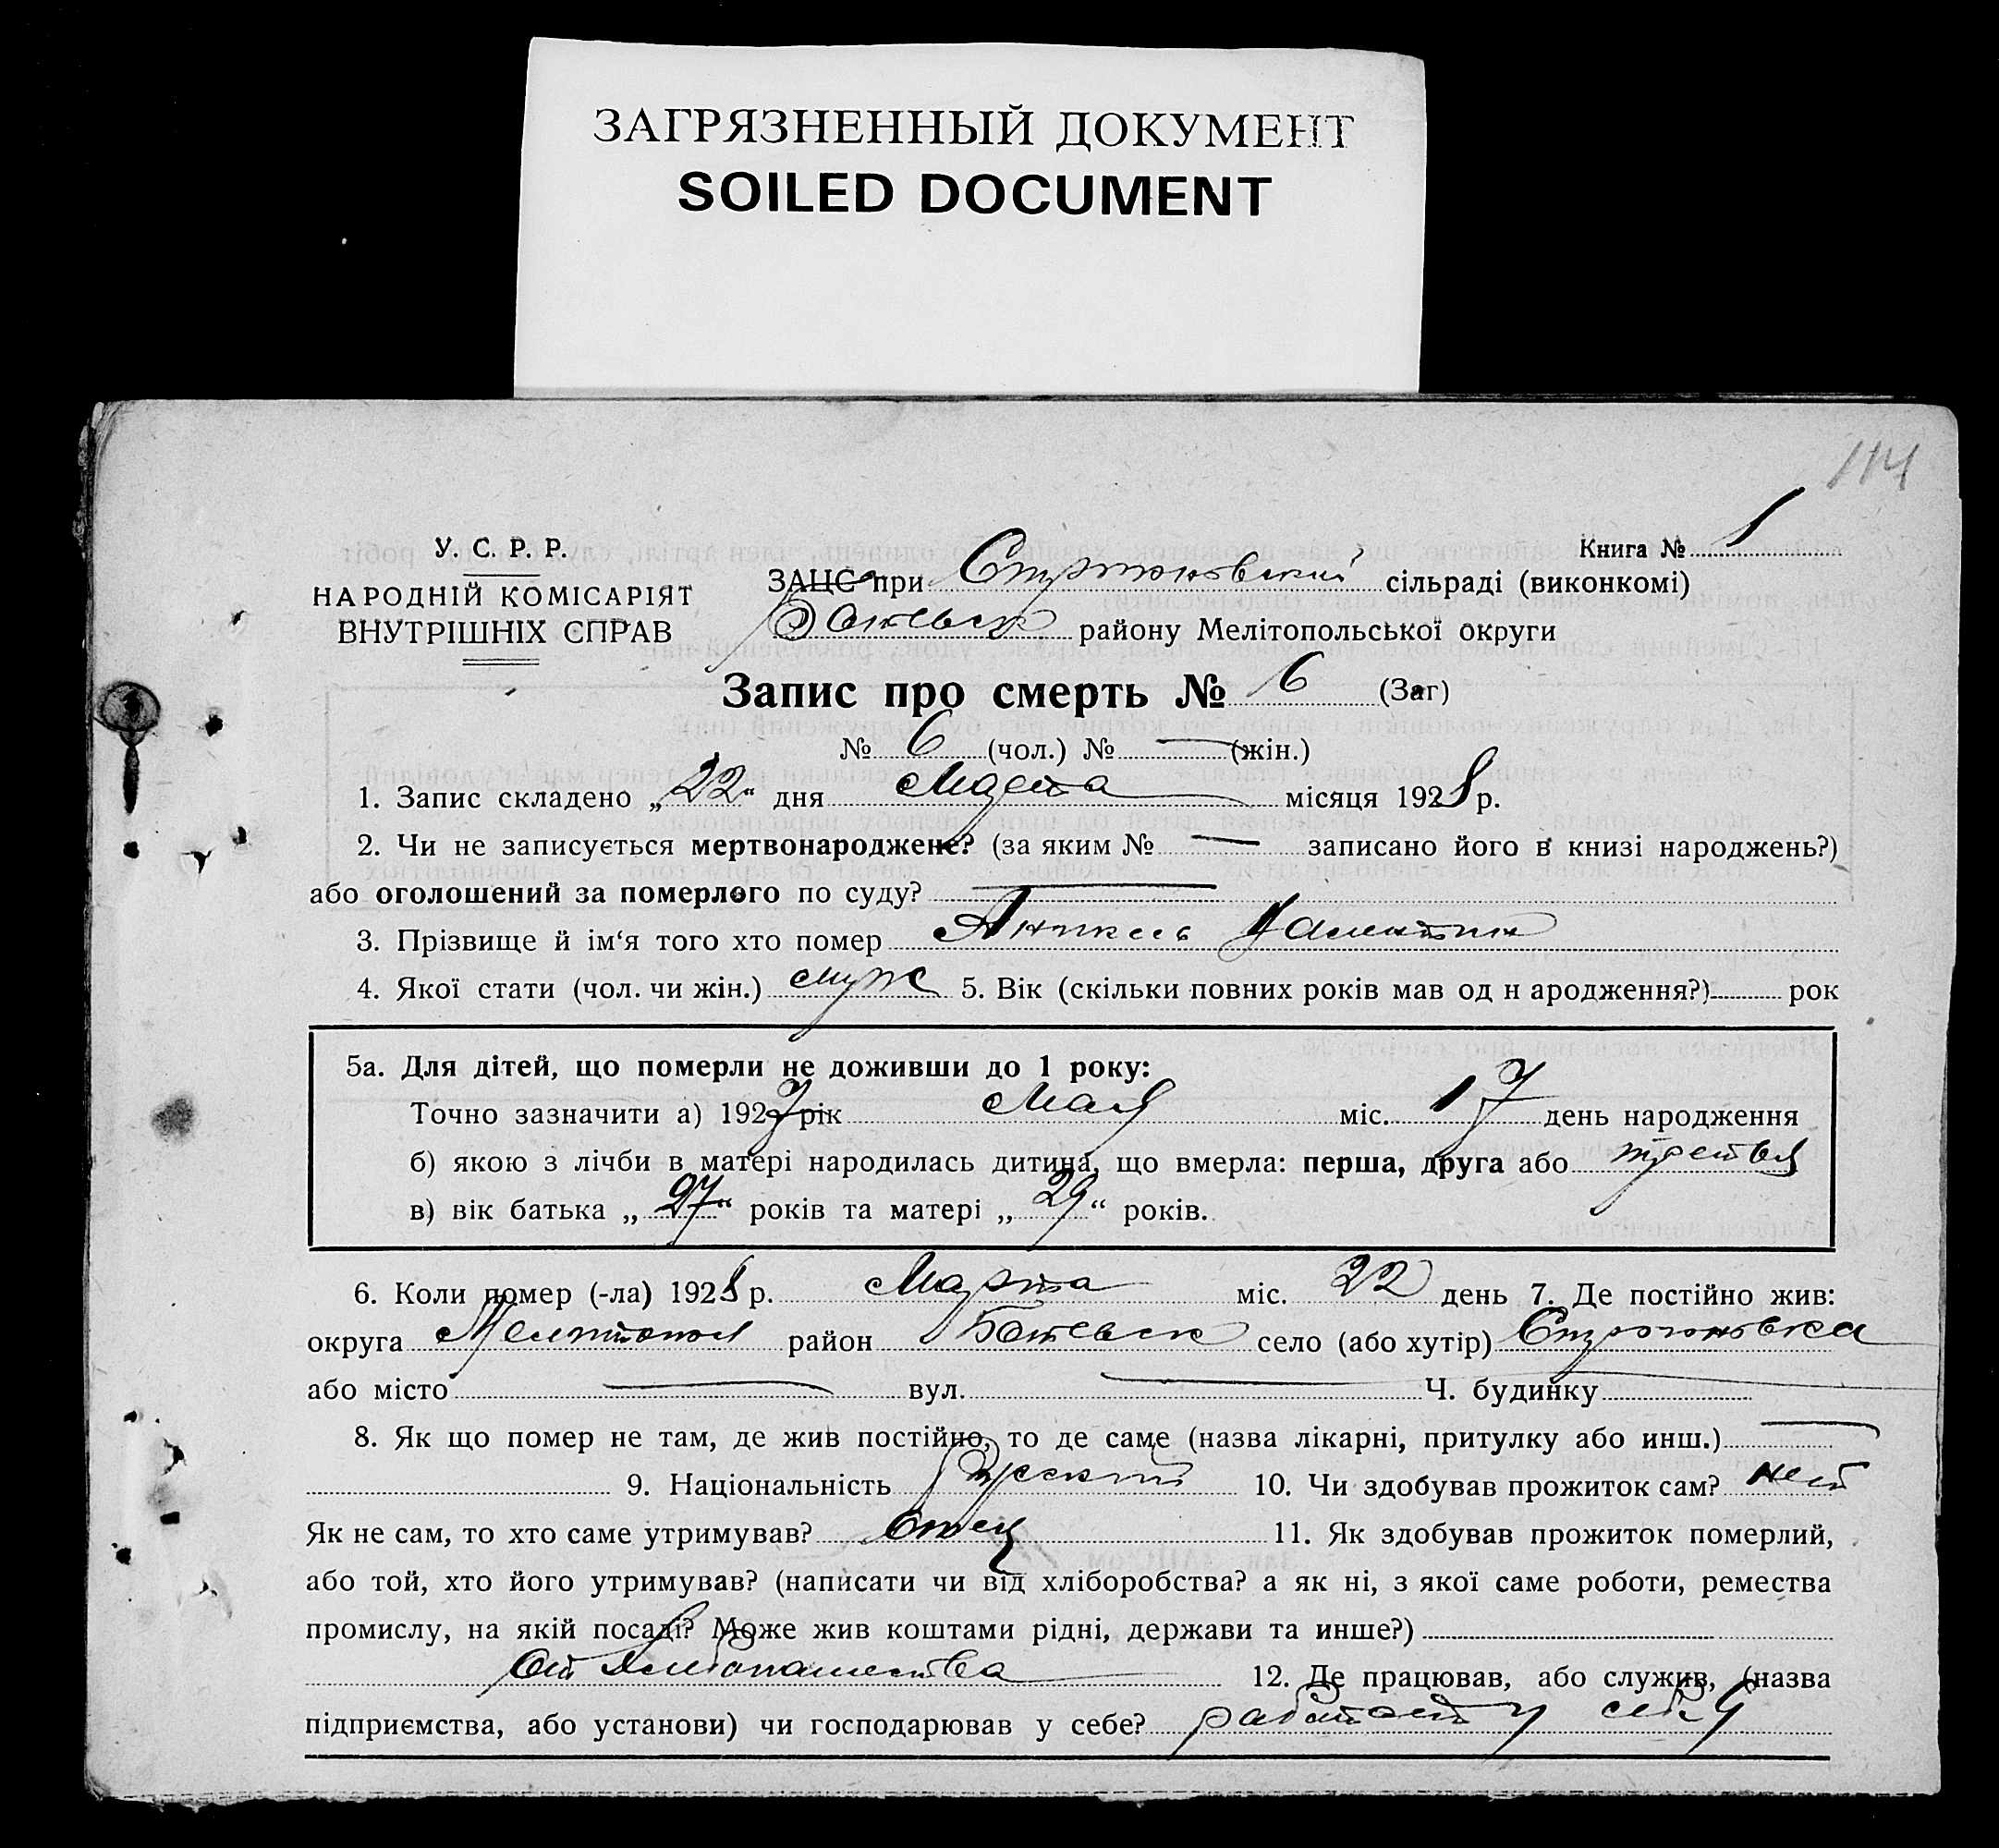 ЗАГРЯЗНЕННЫЙ ДОКУМЕНТ
SOILED DOCUMENT
114
У. С. Р. Р.
НАРОДНІЙ КОМІСАРІЯТ
ВНУТРІШНІХ СПРАВ
Книга № 1
ЗАЦС при сільраді (виконкомі)
району Мелітопольської округи
Запис про смерть № 6 (Заг)
№ 6 (чол.) № — (жін.)
1. Запис складено „22“ дня Марта місяця 1928 р.
2. Чи не записується мертвонароджене? (за яким № — записано його в книзі народжень?)
або оголошений за померлого по суду? —
3. Прізвище й ім‘я того хто помер
4. Якої стати (чол. чи жін.) муж 5. Вік (скільки повних років мав од н ародження?) рок
5а. Для дітей, що померли не доживши до 1 року:
Точно зазначити а) 1927 рік Мая міс. 17 день народження
б) якою з лічби в матері народилась дитина, що вмерла: перша, друга або третья
в) вік батька „27“ років та матері „29“ років.
6. Коли помер (-ла) 1928 р. Марта міс. 22 день 7. Де постійно жив:
округа Мелитопол район Ботевск село (або хутір)
або місто — вул. — Ч. будинку
8. Як що помер не там, де жив постійно, то де саме (назва лікарні, притулку або инш.) —
9. Національність Русский 10. Чи здобував прожиток сам? нет
Як не сам, то хто саме утримував? Отец 11. Як здобував прожиток померлий,
або той, хто його утримував? (написати чи від хліборобства? а як ні, з якої саме роботи, ремества
промислу, на якій посаді? Може жив коштами рідні, держави та инше?)
От хлебопашества 12. Де працював, або служив, (назва
підприємства, або установи) чи господарював у себе? работает у себя